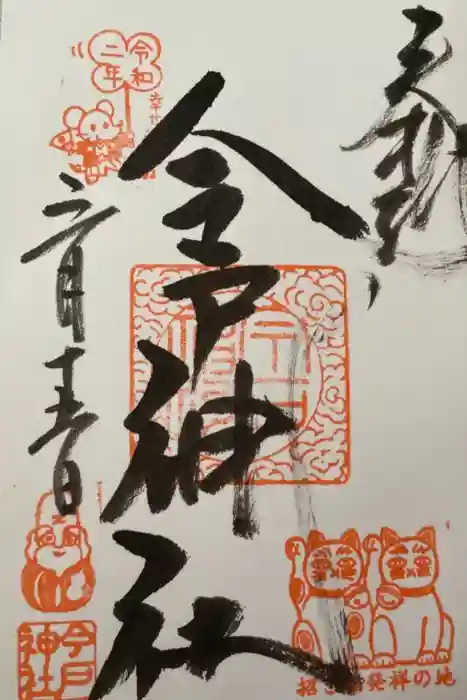 奉拝
今戸神社
六月十五日
令和
二年
今戸
神社
招き猫発祥の地